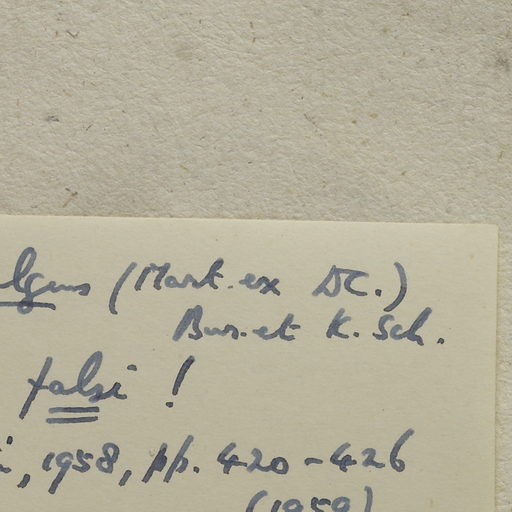 (Mart. ex DC.)
Bur. et K. Sch.
falsi !
, 1958, pp. 420-426
(1959)